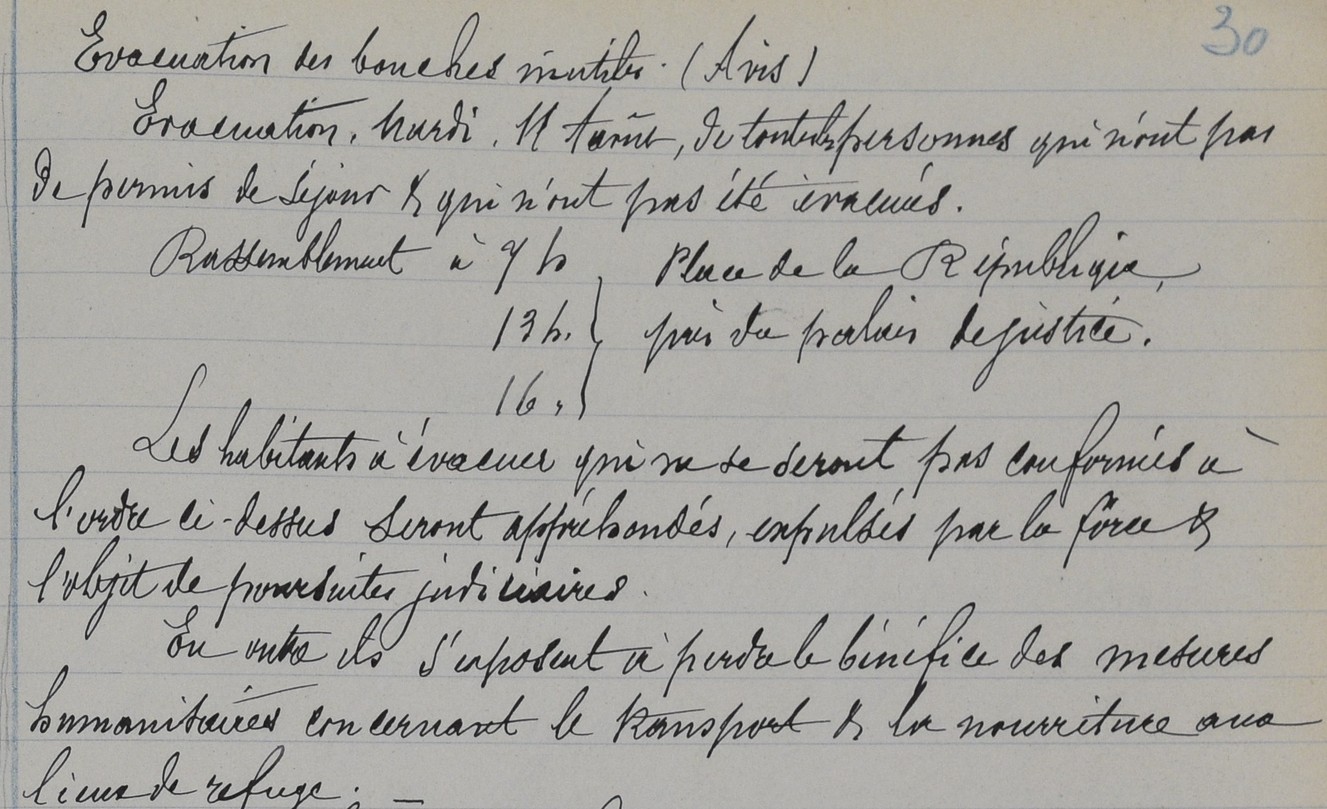 30
Evacuation des bouches inutiles. (Avis)
Evacuation, Mardi, 11 Août, de toutes les personnes qui n'ont pas
de permis de séjour & qui n'ont pas été évacués.
Rassemblement à 7 h Place de la République,
13 h. près du palais de justice.
16 "
Les habitants à évacuer qui ne se seront pas conformés à
l'ordre ci-dessus seront appréhendés, expulsés par la force &
l'objet de poursuites judiciaires.
En outre ils s'exposent à perdre le bénéfice des mesures
humanitaires concernant le transport & la nourriture aux
lieux de refuge. —